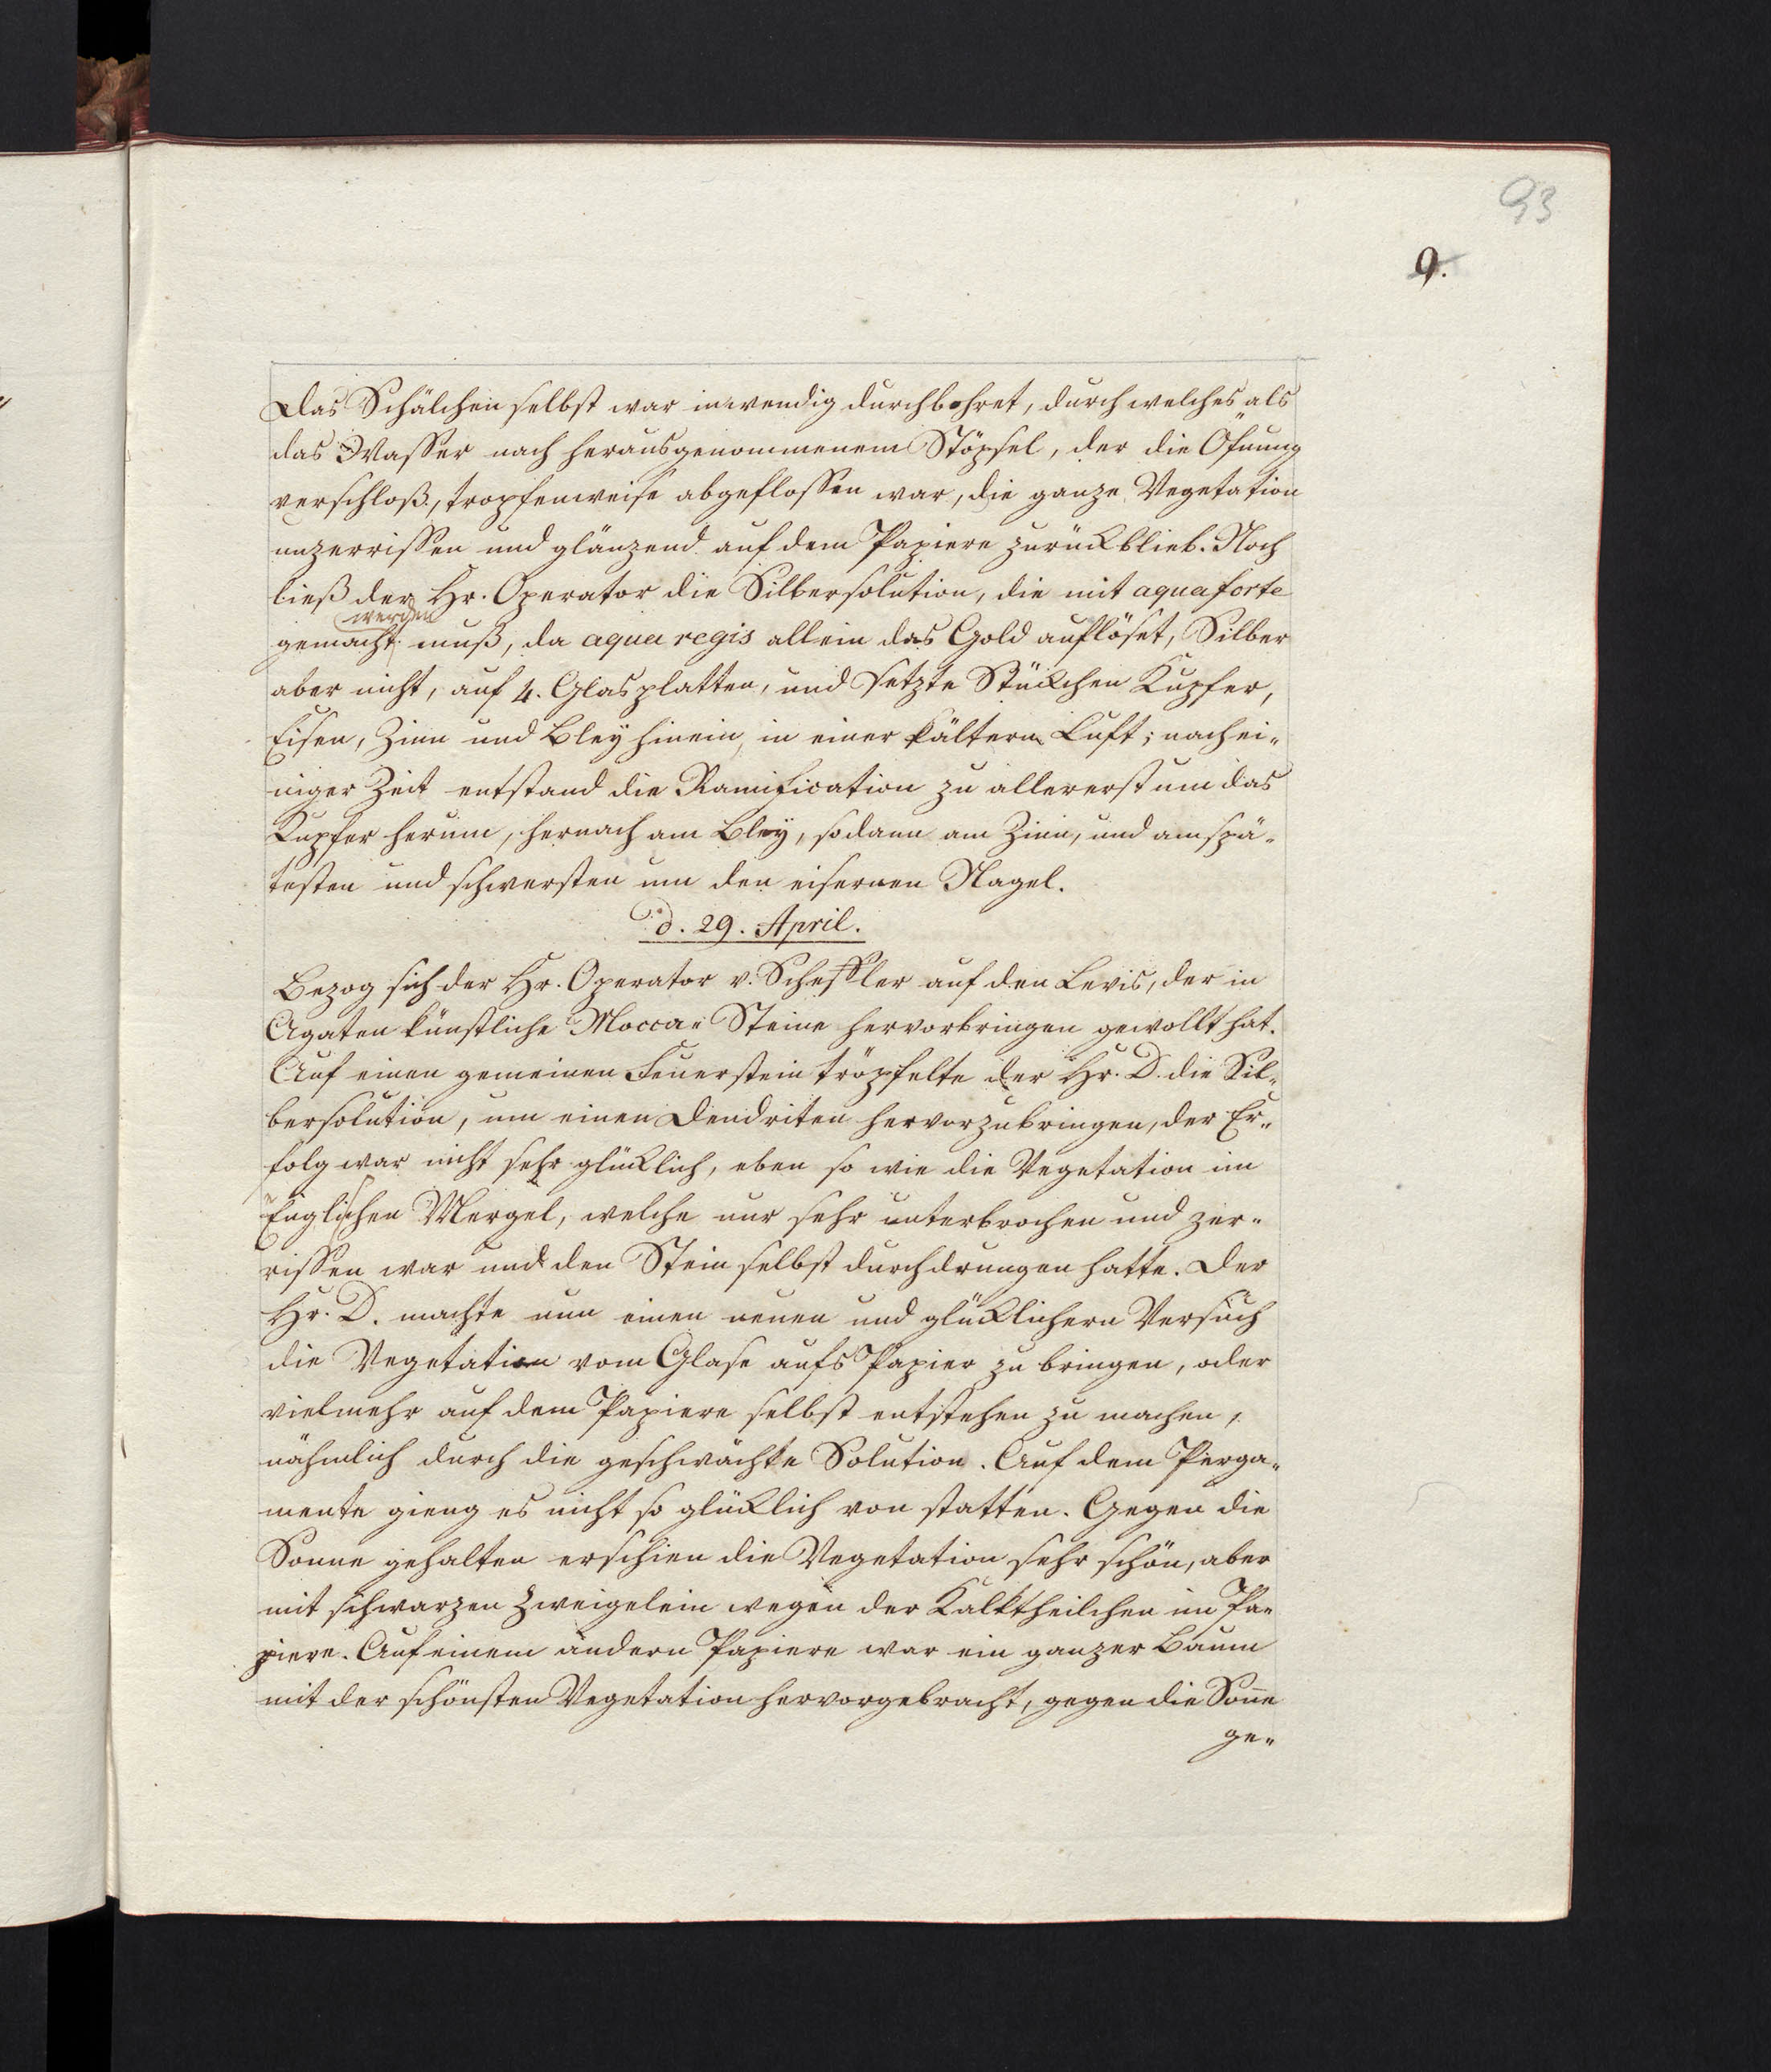 93
9.
Das Schälchen selbst war inwendig durchbohret, durch welches als
das Waßer nach herausgenommenem Stöpsel, der die Öfnung
verschloß, tropfenweise abgefloßen war, die ganze Vegetation
unzerrißen und glänzend auf dem Papiere zurückblieb. Noch
ließ der Hr. Operator die Silbersolution, die mit aqua forte
werden
gemacht muß, da aqua regis allein das Gold auflöset, Silber
aber nicht, auf 4. Glasplatten, und setzte Stückchen Kupfer,
Eisen, Zinn und Bleÿ hinein, in einer kältern Luft; nach ei„
niger Zeit entstand die Ramification zu allererst um das
Kupfer herum, hernach am Bleÿ, sodann am Zinn, und am spä„
testen und schwersten um den eisernen Nagel.
d. 29. April.
Bezog sich der Hr. Operator v. Scheffler auf den Levis, der in
Agaten künstliche Mocca„ Steine hervorbringen gewollt hat.
Auf einen gemeinen Feuerstein tröpfelte der Hr. D. die Sil„
bersolution, um einen Dendriten hervorzubringen, der Er„
folg war nicht sehr glücklich, eben so wie die Vegetation im
Englischen Mergel, welche nur sehr unterbrochen und zer„
rißen war und den Stein selbst durchdrungen hatte. Der
Hr. D. machte nun einen neuen und glücklichern Versuch
die Vegetation vom Glase aufs Papier zu bringen, oder
vielmehr auf dem Papiere selbst entstehen zu machen,
nähmlich durch die geschwächte Solution. Auf dem Perga„
mente gieng es nicht so glücklich von statten. Gegen die
Sonne gehalten erschien die Vegetation sehr schön, aber
mit schwarzen Zweigelein wegen der Kalktheilchen im Pa„
piere. Auf einem andern Papiere war ein ganzer Baum
mit der schönsten Vegetation hervorgebracht, gegen die Soñe
ge„